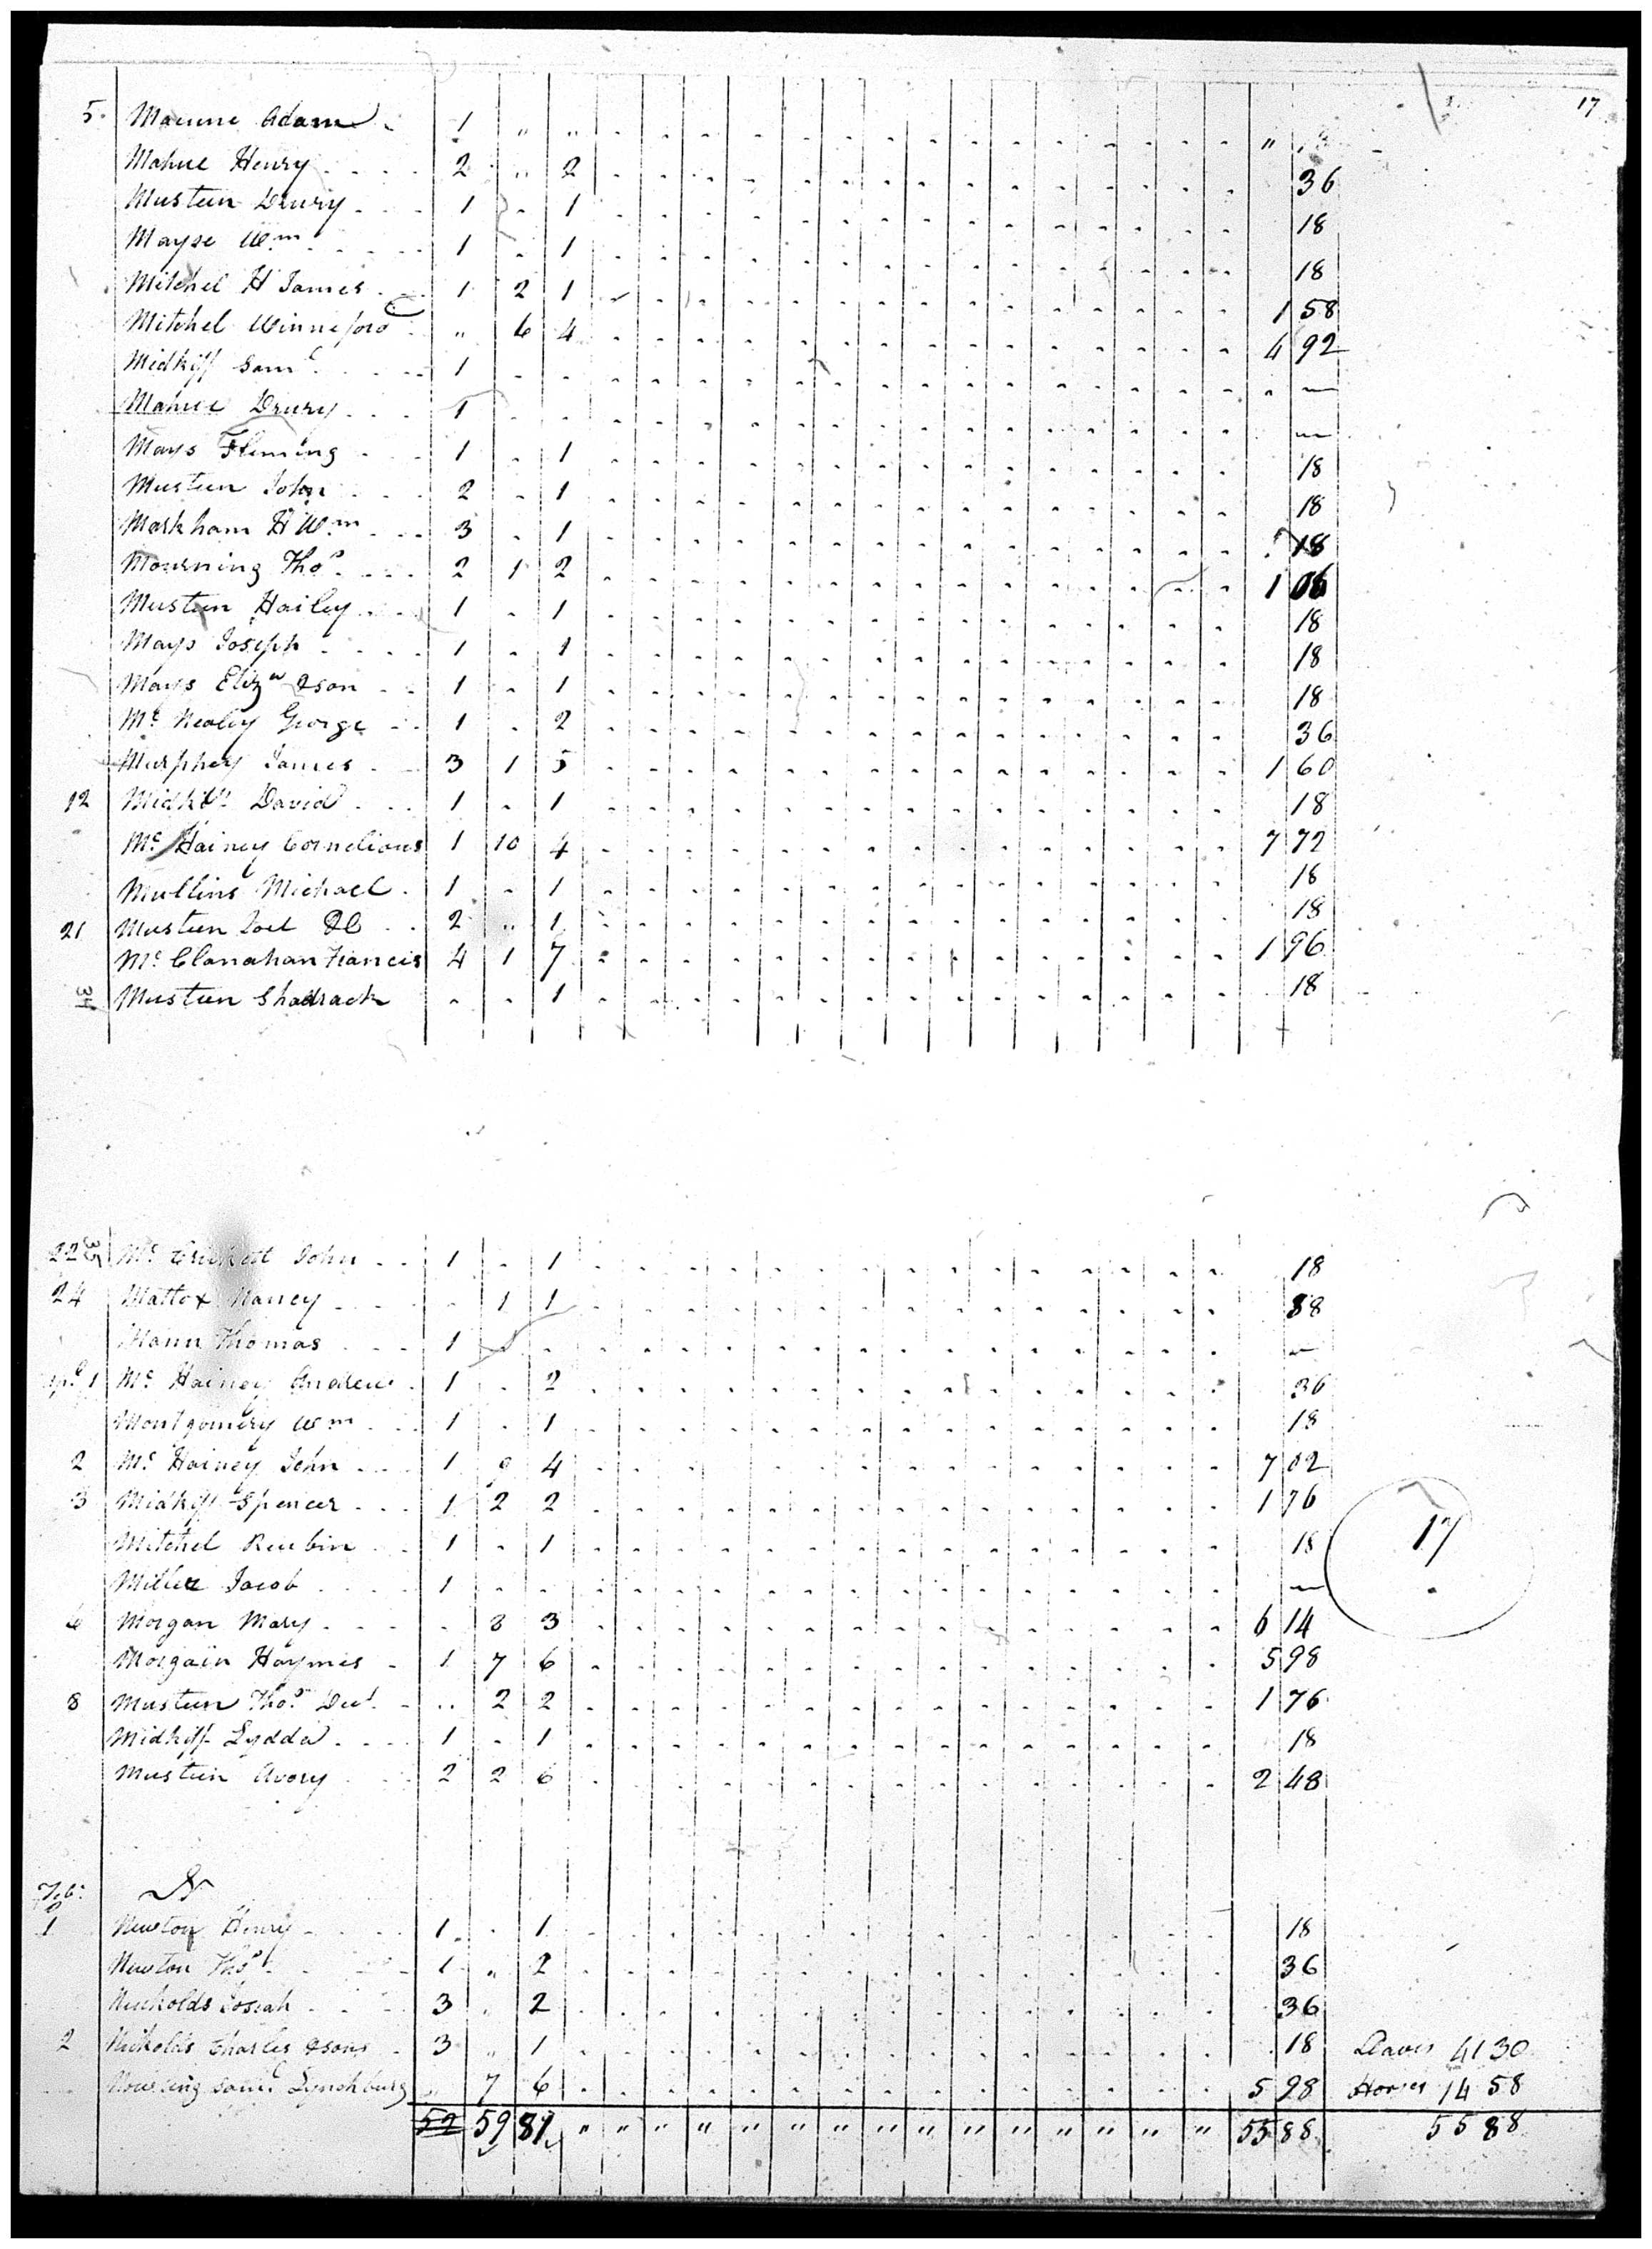 17
5. Maenne Adam 1 " " " "
Mahue Henry 2 " 2 36
Musteen Drury 1 - 1 18
Mayse Wm 1 - 1 18
Mitchel H James 1 2 1 1 58
Mitchel Winneford " 6 4 4 92
Midkiff Saml 1 - - -
Mahue Drury 1 - - -
Mays Fleming 1 - 1 18
Musteen John 2 - 1 18
Markham H Wm 3 - 1 18
Mourning Thos 2 1 2 1 06
Musteen Hailey 1 - 1 18
Mays Joseph 1 - 1 18
Mays Eliza & son 1 - 1 18
Mc Nealey George 1 - 2 36
Murphey James 3 1 5 1 60
12 Midkiff David 1 - 1 18
Mc Hainey Cornelious 1 10 4 7 72
Mullins Michael 1 - 1 18
21 Musteen Joel 2 " 1 18
Mc Clanahan Francis 4 1 7 1 96
34 Musteen Shadrack - - 1 18
22 35 Mc John 1 - 1 18
24 Mattox Nancy - 1 1 88
Mann Thomas 1 - - -
1 Mc Hainey Andrew 1 - 2 36
Montgomery Wm 1 - 1 18
2 Mc Hainey John 1 9 4 7 02
3 Midkiff Spencer 1 2 2 1 76
Mitchel Reubin 1 - 1 18
17
Miller Jacob 1 - - -
6 Morgan Mary - 8 3 6 14
Morgain Haymes 1 7 6 5 98
8 Musteen Thos " 2 2 1 76
Midkiff Lydda 1 - 1 18
Musteen Avory 2 2 6 2 48
Feb: N
1 Newton Henry 1 - 1 18
Newton Thos 1 " 2 36
Nucholds Josiah 3 " 2 36
2 Nicholds Charles & sons 3 " 1 18 Slaves 41 30
Saml Lynchburg " 7 6 5 98 Horses 14 58
52 59 81 " " " " " " " " " " " " " " " 55 88 55 88